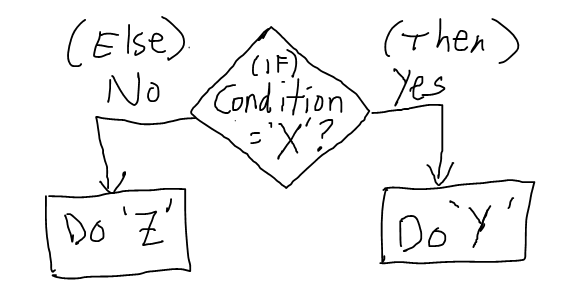 (Else)
No
(IF)
Condition
='X'?
(Then)
Yes
Do 'Z'
Do 'Y'